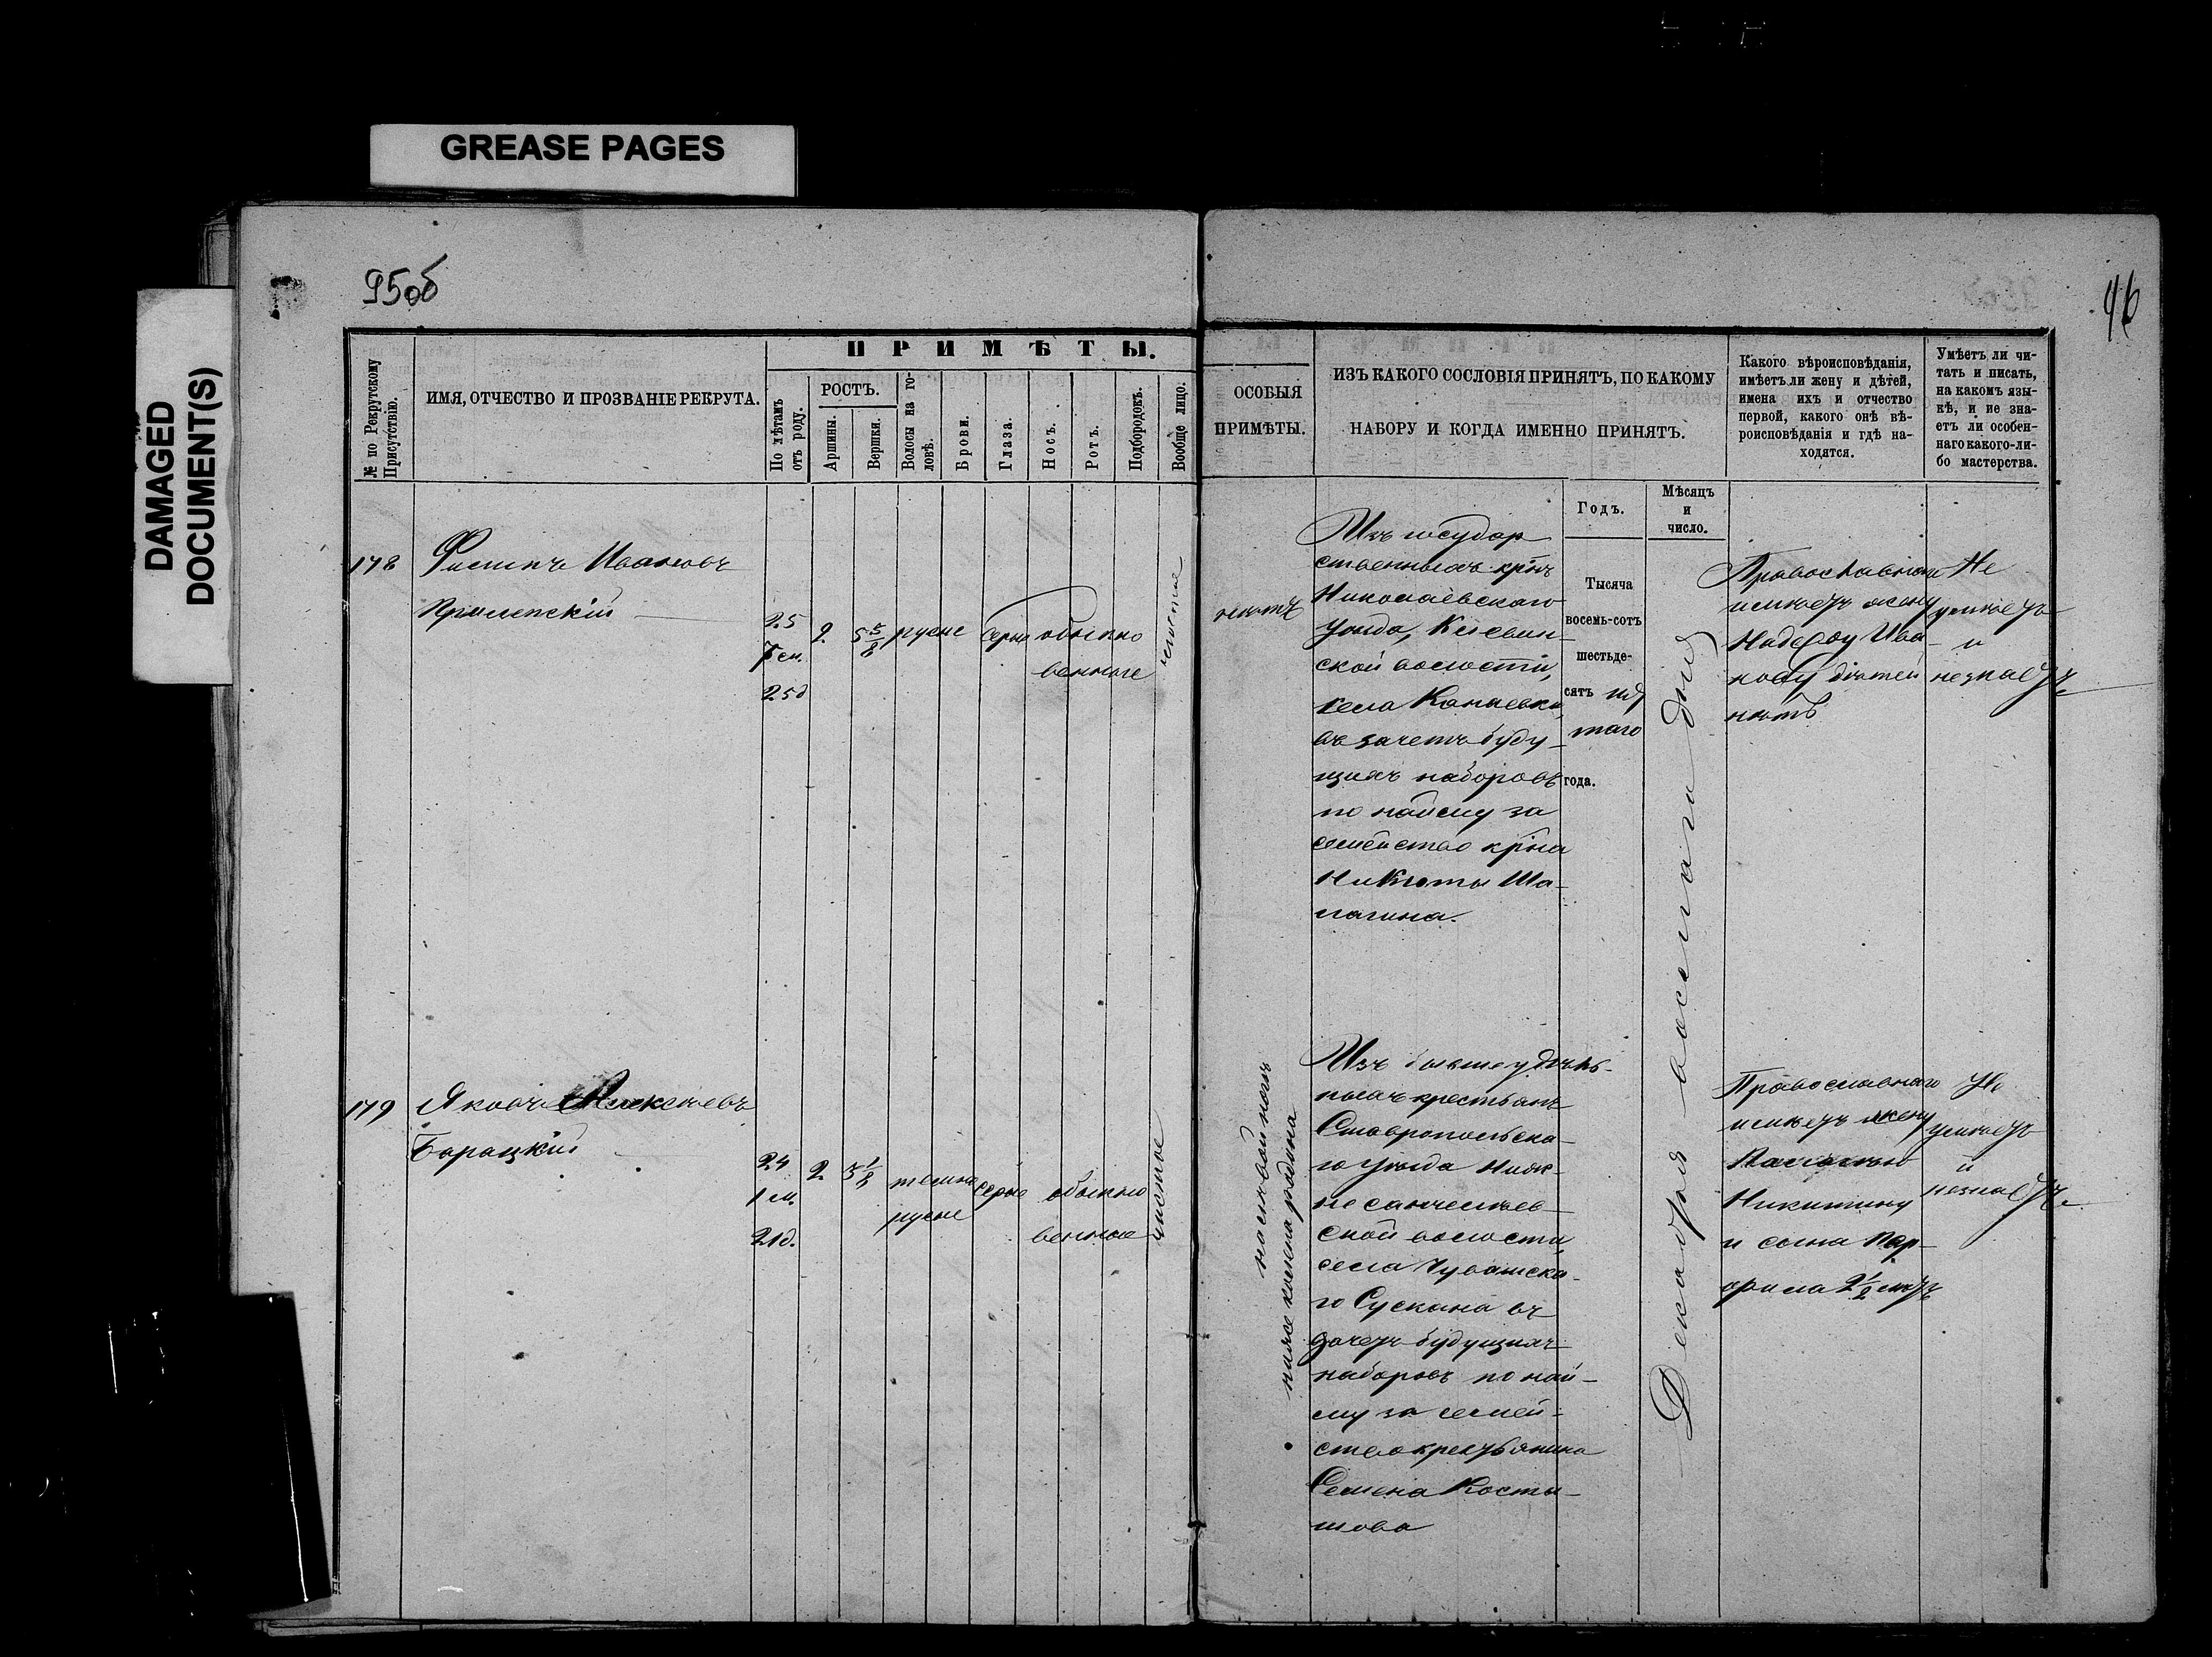 GREASE PAGES
DAMAGED
DOCUMENT(S)
95об
96
№ по Рекрутскому
Присутствію.
ИМЯ, ОТЧЕСТВО И ПРОЗВАНІЕ РЕКРУТА.
ПРИМѢТЫ.
По лѣтамъ
отъ роду.
РОСТЪ.
Аршины.
Вершки.
Волосы на го-
ловѣ.
Брови.
Глаза.
Носъ.
Ротъ.
Подбородокъ.
Вообще лицо.
ОСОБЫЯ
ПРИМѢТЫ.
ИЗЪ КАКОГО СОСЛОВІЯ ПРИНЯТЪ, ПО КАКОМУ
НАБОРУ И КОГДА ИМЕННО ПРИНЯТЪ.
Какого вѣроисповѣданія,
имѣетъ ли жену и дѣтей,
имена ихъ и отчество
первой, какого онѣ вѣ-
роисповѣданія и гдѣ на-
ходятся.
Умѣетъ ли чи-
тать и писать,
на какомъ язы-
кѣ, и не зна-
етъ ли особен-
наго какого-ли-
бо мастерства.
Годъ.
Мѣсяцъ
и
число.
178
Филипъ Ивановъ
25
2
5 5/8
русые
сѣрые
обыкно
венные
чистое
25д
нѣтъ
Изъ государ
ственныхъ крнъ
Николаевскаго
Уѣзда,
ской волости,
села Канаевки,
въ зачетъ буду-
щихъ наборовъ
по найму за
семейство крна
Никиты Ша-
лагина.
Тысяча
восемь-сотъ
шестьде-
сятъ
таго
года.
Декабря осьмаго дня
Православнаго
имѣетъ жену
Ива-
нову дѣтей
нѣтъ
Не
умѣетъ
и
незнаетъ
179
Яковъ Алексѣевъ
Барацкій
24
1 м.
21д.
2
3 1/8
темно
русые
сѣрые
обыкно
венные
чистое
на лѣвой ногѣ
ниже колена родина
Изъ бывше удѣль-
ныхъ крестьянъ
Ставропольска-
го Уѣзда Ниж-
не санчелѣев-
ской волости,
села Чувашска-
го Сускана въ
зачетъ будущихъ
наборовъ по най-
му за семей-
ство крестьянина
Семена Косты-
Православнаго
имѣетъ жену
Никитину
и сына Пор-
фила 2 1/2 лѣтъ
Не
умѣетъ
и
незнаетъ